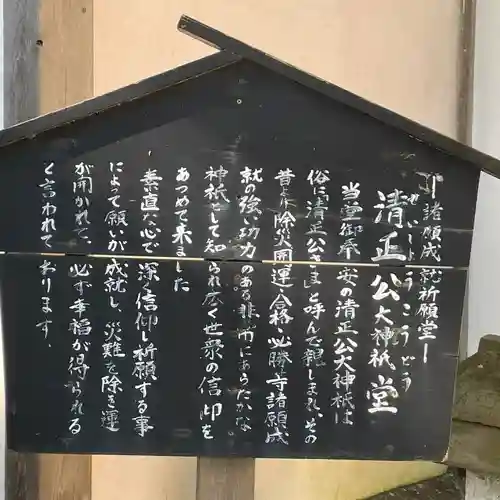 ｢諸願成就祈願堂｣
せいしょうこうどう
清正公大神祇堂
当堂御奉安の清正公大神祇は
俗に「清正公さま」と呼んで親しまれ、その
昔より除災開運合格必勝等諸願成
就の強い功力のある非常にあらたかな
神祇として知られ広く世衆の信仰を
あつめて来ました
素直な心で深く信仰し祈願する事
によって願いが成就し、災難を除き運
が開かれて、必ず幸福が得られる
と言われております．